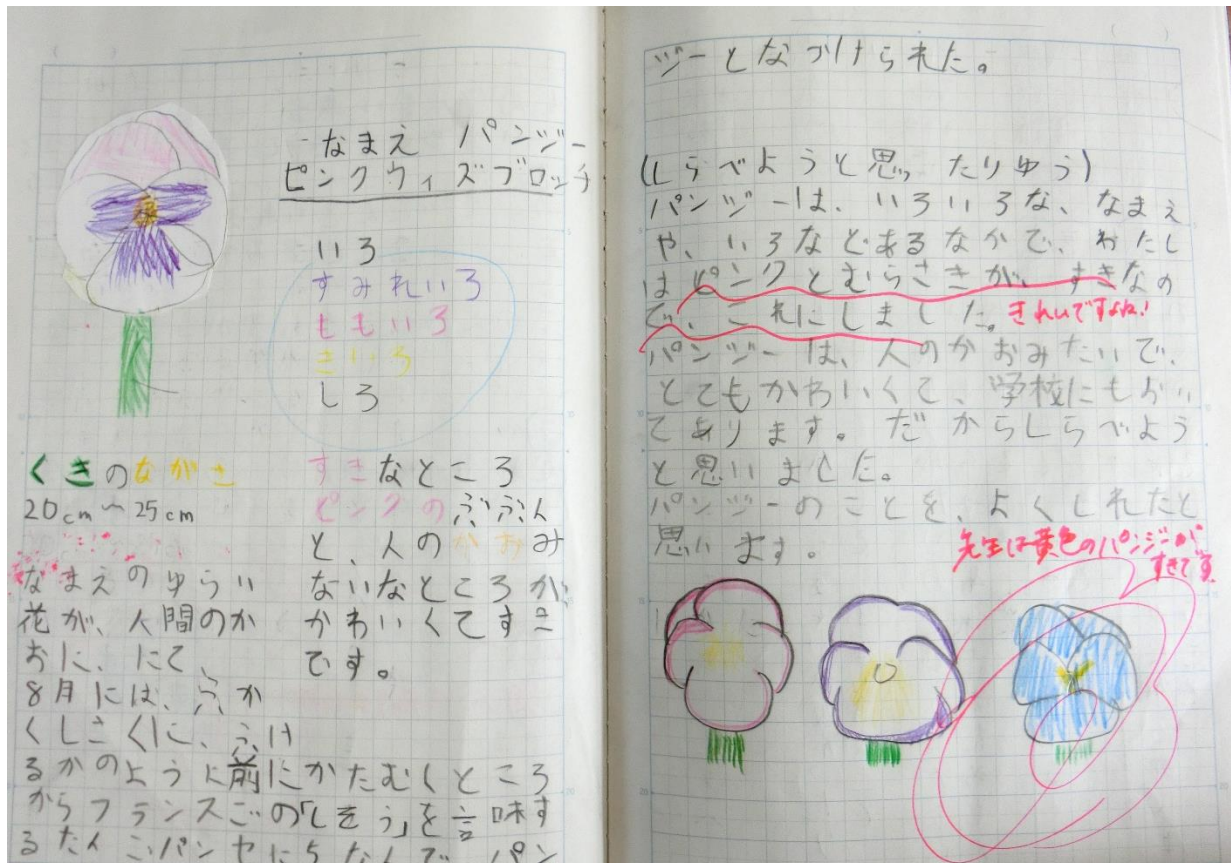 なまえ パンジー
ピンクウィズブロッチ
いろ
すみれいろ
ももいろ
きいろ
しろ
くきのながさ
20cm〜25cm
なまえのゆらい
花が、人間のか
おに、にて、
8月には、ふか
くしさくに、ふけ
るかのように前にかたむくところ
からフランスごの「しそう」を意味す
るたんごパンセにちなんで、パン
すきなところ
ピンクのぶぶん
と、人のかおみ
ないなところが、
かわいくてすき
です。
ジーとなづけられた。
(しらべようと思ったりゆう)
パンジーは、いろいろな、なまえ
や、いろなどあるなかで、わたし
はピンクとむらさきが、すきなの
で、これにしました。きれいですよね!
パンジーは、人のかおみたいで、
とてもかわいくて、学校にもおい
てあります。だからしらべよう
と思いました。
パンジーのことを、よくしれたと
思います。
先生は黄色のパンジーが
すきです。